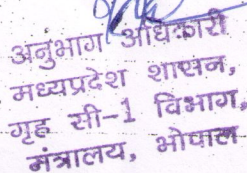 अनुभाग अधिकारी
मध्यप्रदेश शासन,
गृह सी-1 विभाग,
मंत्रालय, भोपाल